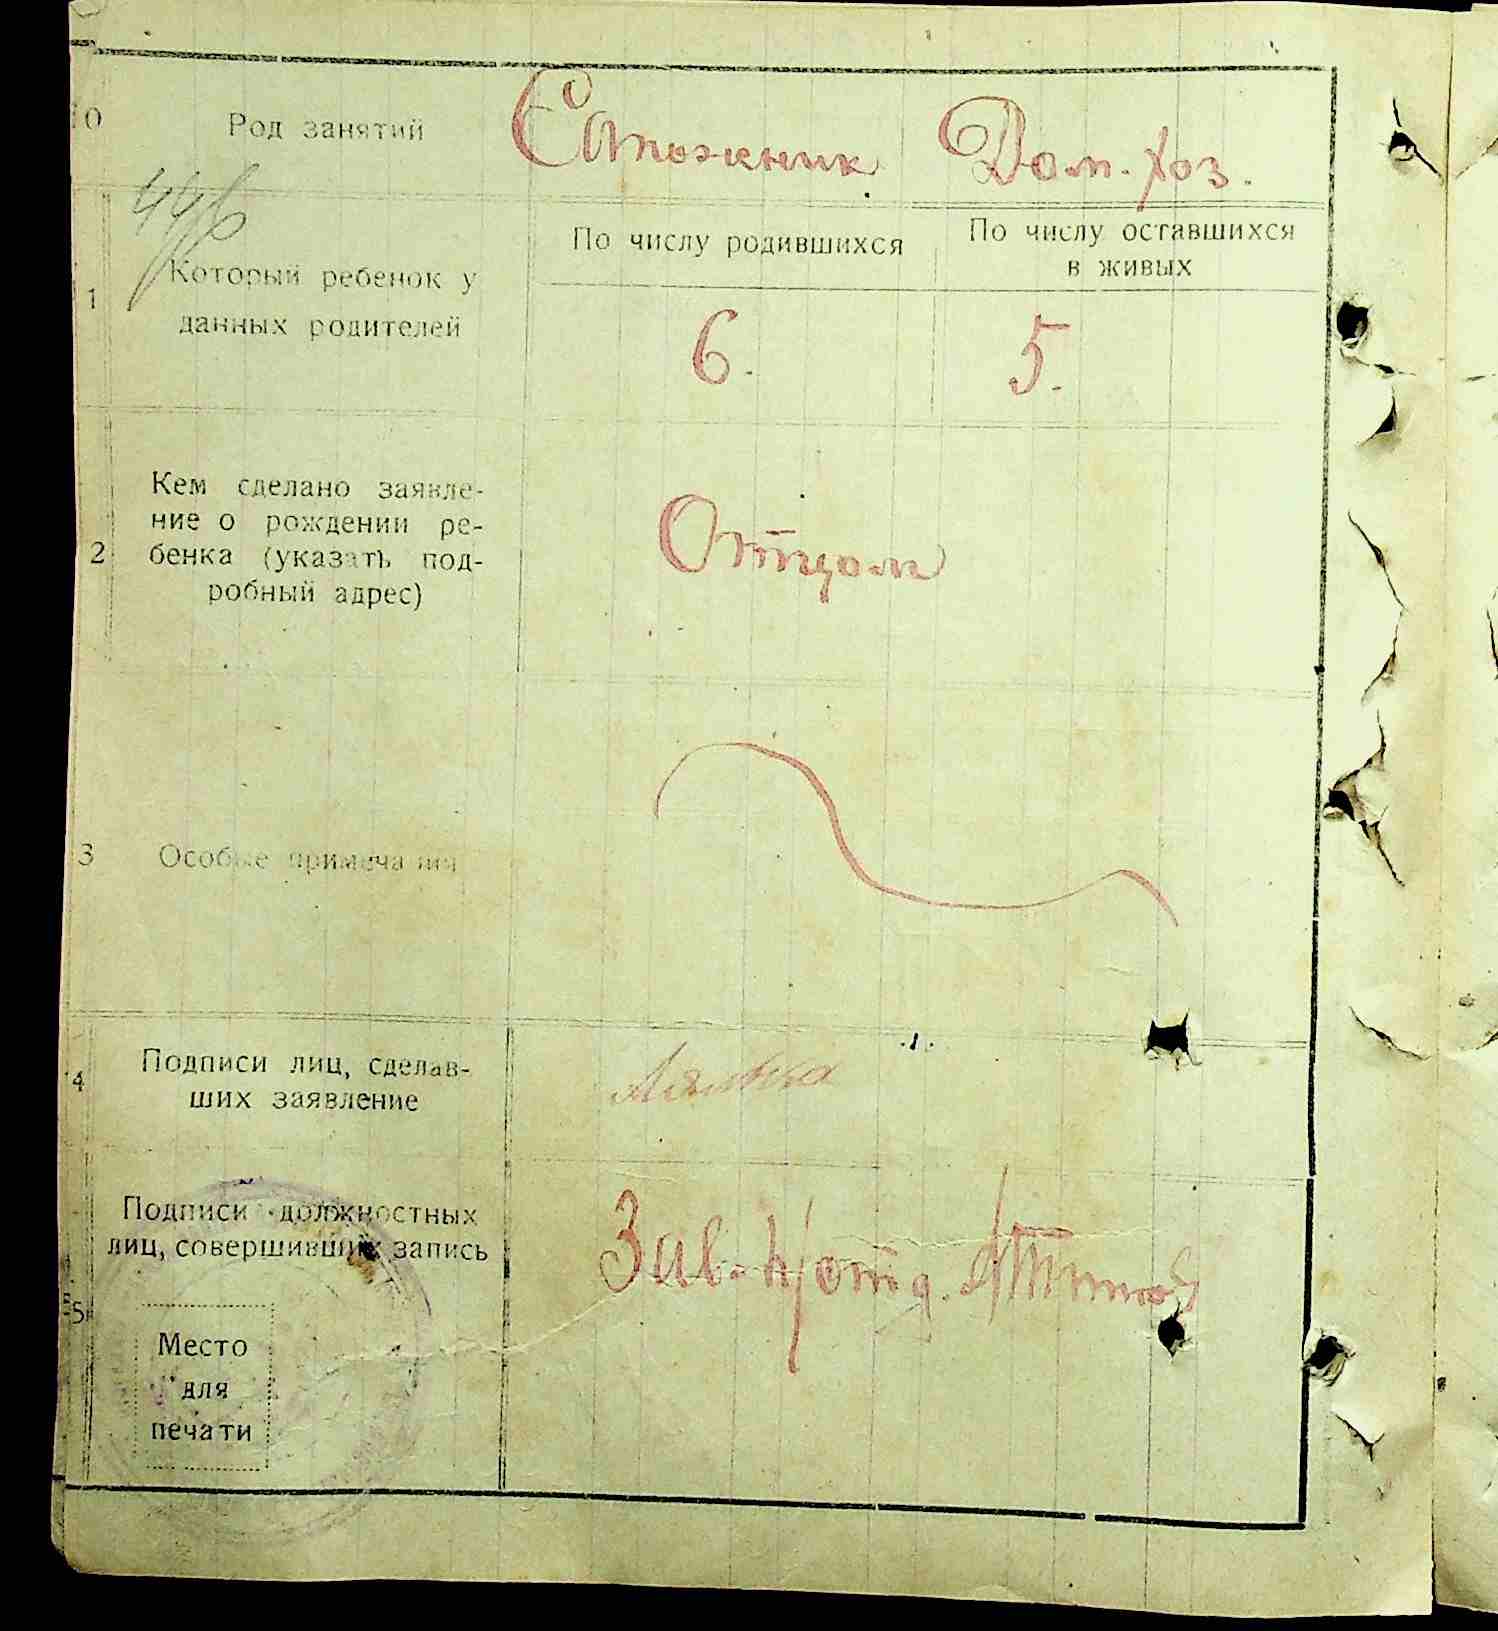 10 Род занятий Сапожник Дом. хоз.
446
По числу родившихся По числу оставшихся
в живых
1 Который ребенок у
данных родителей
6. 5.
Кем сделано заявле-
ние о рождении ре-
2 бенка (указать под-
робный адрес)
Отцом
3 Особые примечания
Подписи лиц, сделав-
4 ших заявление
Подписи должностных
лиц, совершивших запись
Зав.
5
Место
для
печати